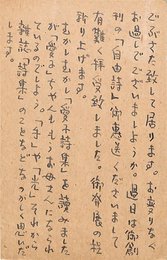 ごぶさた致して居ります。お変りなく
お過しでございませうか。過日は御創
刊の「自由詩」御恵送くださいまして
有難く拝受致しました。御発展の程
祈り上げます。
むかしむかし「愛子詩集」を読みました
が「愛子」ちやんももうお母さんになられ
ているのでせう。「手」や「光」それから
雑誌「詩集」のことなどなつかしく思いだ
します。